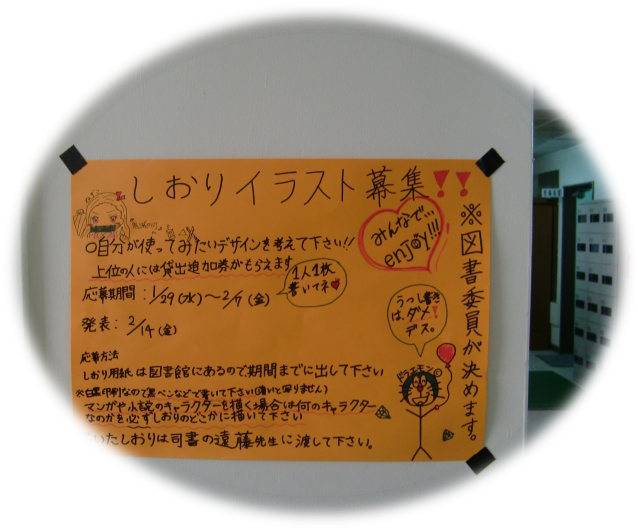 しおりイラスト募集!!
みんなで…
enjoy!!!
※図書委員が決めます。
○自分が使ってみたいデザインを考えて下さい!!
上位の人には貸出追加券がもらえます
1人1枚
書いてネ
応募期間:1/29(水)~2/7(金)
発表:2/14(金)
うつし書き
は、ダメ!
デス。
応募方法
しおり用紙は図書館にあるので、期間までに出して下さい
ドラえモン
※白黒印刷なので黒ペンなどで書いて下さい(薄いと写りません)
マンガや小説のキャラクターを描く場合は何のキャラクター
なのかを必ずしおりのどこかに描いて下さい
いたしおりは司書の遠藤先生に渡して下さい。